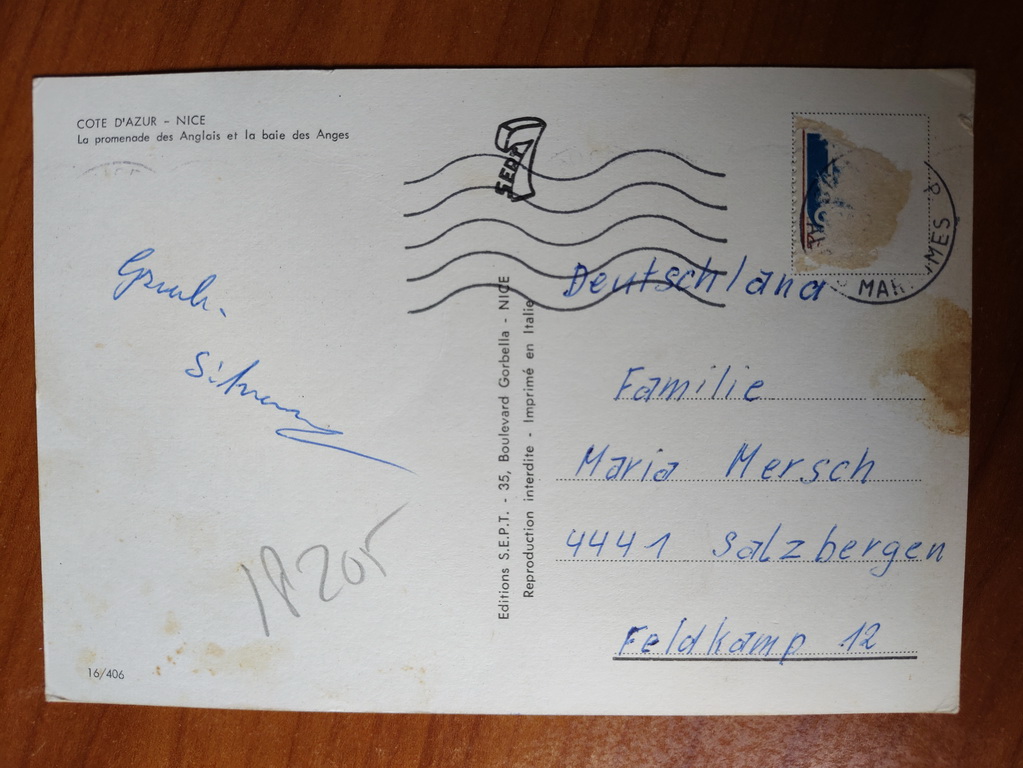 COTE D'AZUR – NICE
La promenade des Anglais et la baie des Anges
SEPT
MAR
IMES
Deutschland
Familie
Maria Mersch
4441 Salzbergen
Feldkamp 12
Editions S.E.P.T. - 35, Boulevard Gorbella - NICE
Reproduction interdite - Imprimé en Italie
16/406